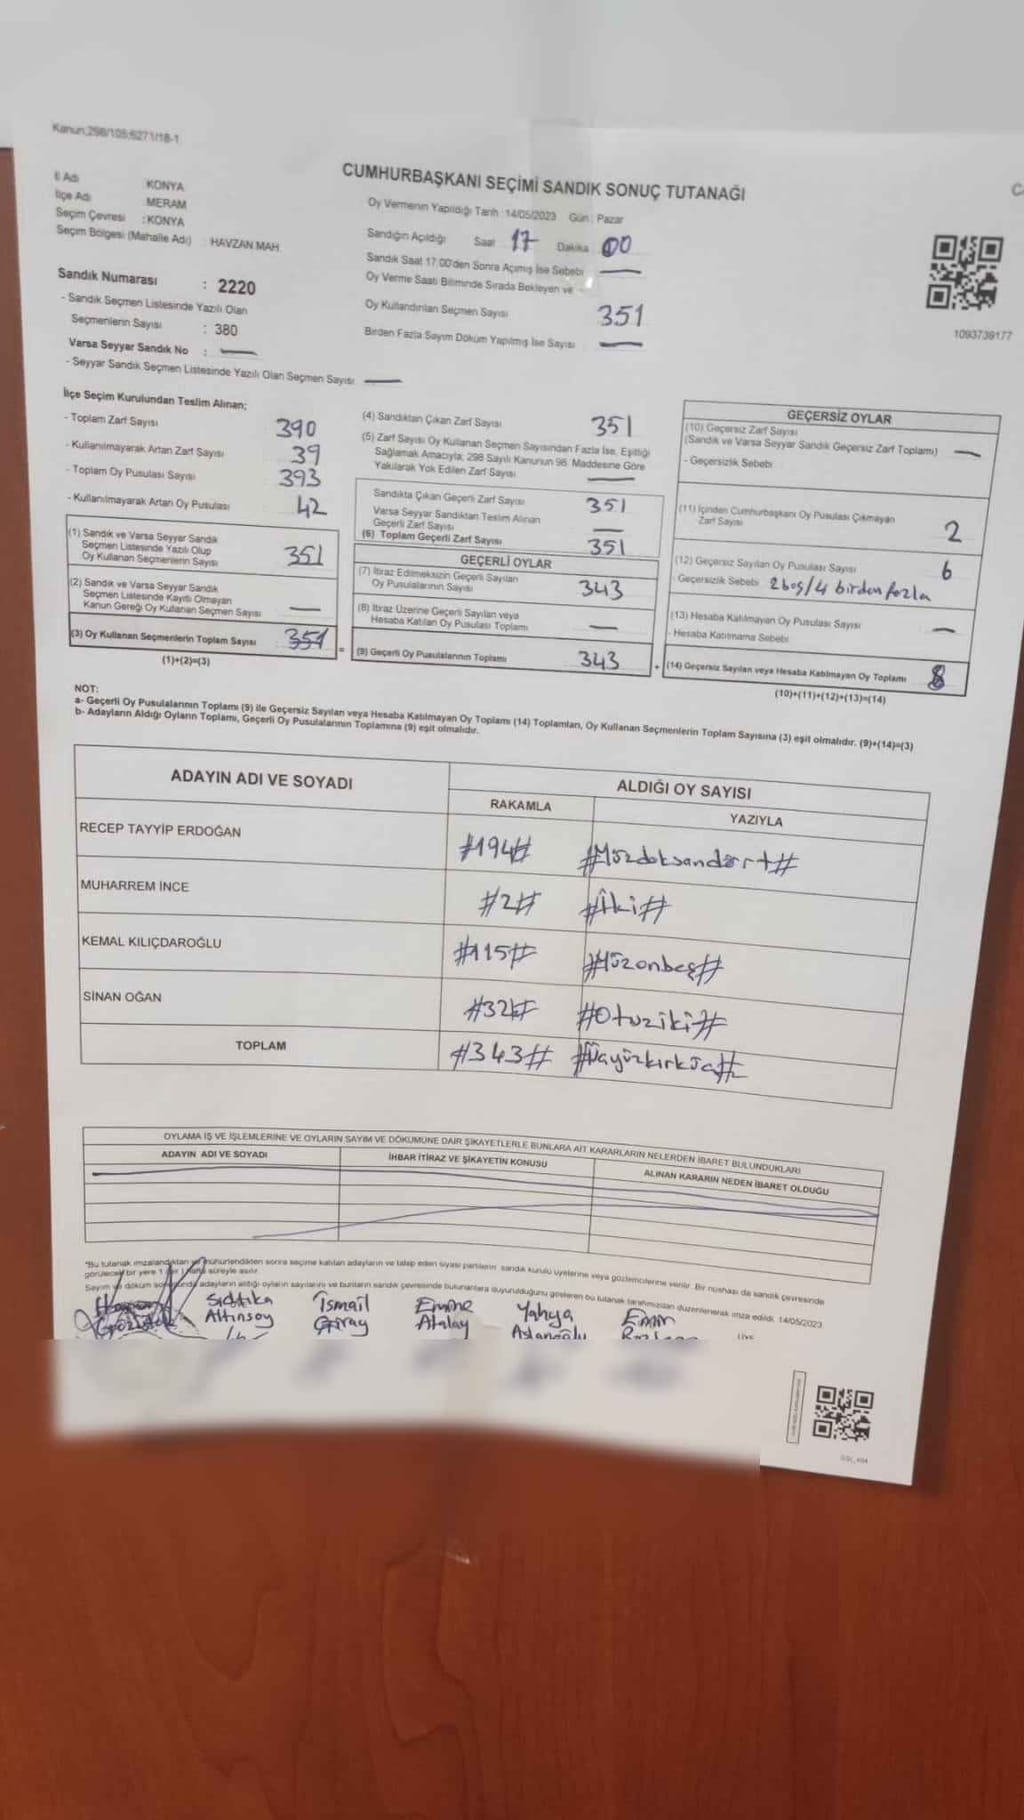 Kanun;298/105;6271/18-1
CUMHURBAŞKANI SEÇİMİ SANDIK SONUÇ TUTANAĞI
İl Adı : KONYA
İlçe Adı : MERAM
Seçim Çevresi : KONYA
Seçim Bölgesi (Mahalle Adı) : HAVZAN MAH.
Sandık Numarası : 2220
- Sandık Seçmen Listesinde Yazılı Olan
Seçmenlerin Sayısı : 380
Varsa Seyyar Sandık No : —
- Seyyar Sandık Seçmen Listesinde Yazılı Olan Seçmen Sayısı —
Oy Vermenin Yapıldığı Tarih : 14/05/2023 Gün : Pazar
Sandığın Açıldığı Saat 17 Dakika 00
Sandık Saat 17.00'den Sonra Açımış İse Sebebi —
Oy Verme Saati Bitiminde Sırada Bekleyen ve
Oy Kullandırılan Seçmen Sayısı 351
Birden Fazla Sayım Döküm Yapılmış İse Sayısı —
1093739177
İlçe Seçim Kurulundan Teslim Alınan;
- Toplam Zarf Sayısı 390
- Kullanılmayarak Artan Zarf Sayısı 39
- Toplam Oy Pusulası Sayısı 393
- Kullanılmayarak Artan Oy Pusulası 42
(1) Sandık ve Varsa Seyyar Sandık
Seçmen Listesinde Yazılı Olup
Oy Kullanan Seçmenlerin Sayısı 351
(2) Sandık ve Varsa Seyyar Sandık
Seçmen Listesinde Kayıtlı Olmayan
Kanun Gereği Oy Kullanan Seçmen Sayısı —
(3) Oy Kullanan Seçmenlerin Toplam Sayısı 351
(1)+(2)=(3)
(4) Sandıktan Çıkan Zarf Sayısı 351
(5) Zarf Sayısı Oy Kullanan Seçmen Sayısından Fazla İse, Eşitliği
Sağlamak Amacıyla; 298 Sayılı Kanunun 98. Maddesine Göre
Yakılarak Yok Edilen Zarf Sayısı —
Sandıkta Çıkan Geçerli Zarf Sayısı 351
Varsa Seyyar Sandıktan Teslim Alınan
Geçerli Zarf Sayısı —
(6) Toplam Geçerli Zarf Sayısı 351
GEÇERLİ OYLAR
(7) İtiraz Edilmeksizin Geçerli Sayılan
Oy Pusulalarının Sayısı 343
(8) İtiraz Üzerine Geçerli Sayılan veya
Hesaba Katılan Oy Pusulası Toplamı —
= (9) Geçerli Oy Pusulalarının Toplamı 343
GEÇERSİZ OYLAR
(10) Geçersiz Zarf Sayısı
(Sandık ve Varsa Seyyar Sandık Geçersiz Zarf Toplamı) —
- Geçersizlik Sebebi
(11) İçinden Cumhurbaşkanı Oy Pusulası Çıkmayan
Zarf Sayısı 2
(12) Geçersiz Sayılan Oy Pusulası Sayısı 6
- Geçersizlik Sebebi 2boş/4 birden fazla
(13) Hesaba Katılmayan Oy Pusulası Sayısı —
- Hesaba Katılmama Sebebi
+ (14) Geçersiz Sayılan veya Hesaba Katılmayan Oy Toplamı 8
(10)+(11)+(12)+(13)=(14)
NOT:
a- Geçerli Oy Pusulalarının Toplamı (9) ile Geçersiz Sayılan veya Hesaba Katılmayan Oy Toplamı (14) Toplamları, Oy Kullanan Seçmenlerin Toplam Sayısına (3) eşit olmalıdır. (9)+(14)=(3)
b- Adayların Aldığı Oyların Toplamı, Geçerli Oy Pusulalarının Toplamına (9) eşit olmalıdır.
ADAYIN ADI VE SOYADI ALDIĞI OY SAYISI
RAKAMLA YAZIYLA
RECEP TAYYİP ERDOĞAN #194# #Yüzdoksandört#
MUHARREM İNCE #2# #İki#
KEMAL KILIÇDAROĞLU #115# #Yüzonbeş#
SİNAN OĞAN #32# #Otuziki#
TOPLAM #343# #Üçyüzkırküç#
OYLAMA İŞ VE İŞLEMLERİNE VE OYLARIN SAYIM VE DÖKÜMÜNE DAİR ŞİKAYETLERLE BUNLARA AİT KARARLARIN NELERDEN İBARET BULUNDUKLARI
ADAYIN ADI VE SOYADI İHBAR İTİRAZ VE ŞİKAYETİN KONUSU ALINAN KARARIN NEDEN İBARET OLDUĞU
*Bu tutanak imzalandıktan ve mühürlendikten sonra seçime katılan adayların ve talep eden siyasi partilerin sandık kurulu üyelerine veya gözlemcilerine verilir. Bir nüshası da sandık çevresinde
görülecek bir yere 1 (bir) hafta süreyle asılır.
Sayım ve döküm sonucunda adayların aldığı oyların sayılarını ve bunların sandık çevresinde bulunanlara duyurulduğunu gösteren bu tutanak tarafımızdan düzenlenerek imza edildi. 14/05/2023
Sıddıka İsmail Emine Yahya Emin
Altınsoy Giray Atalay Aslanoğlu